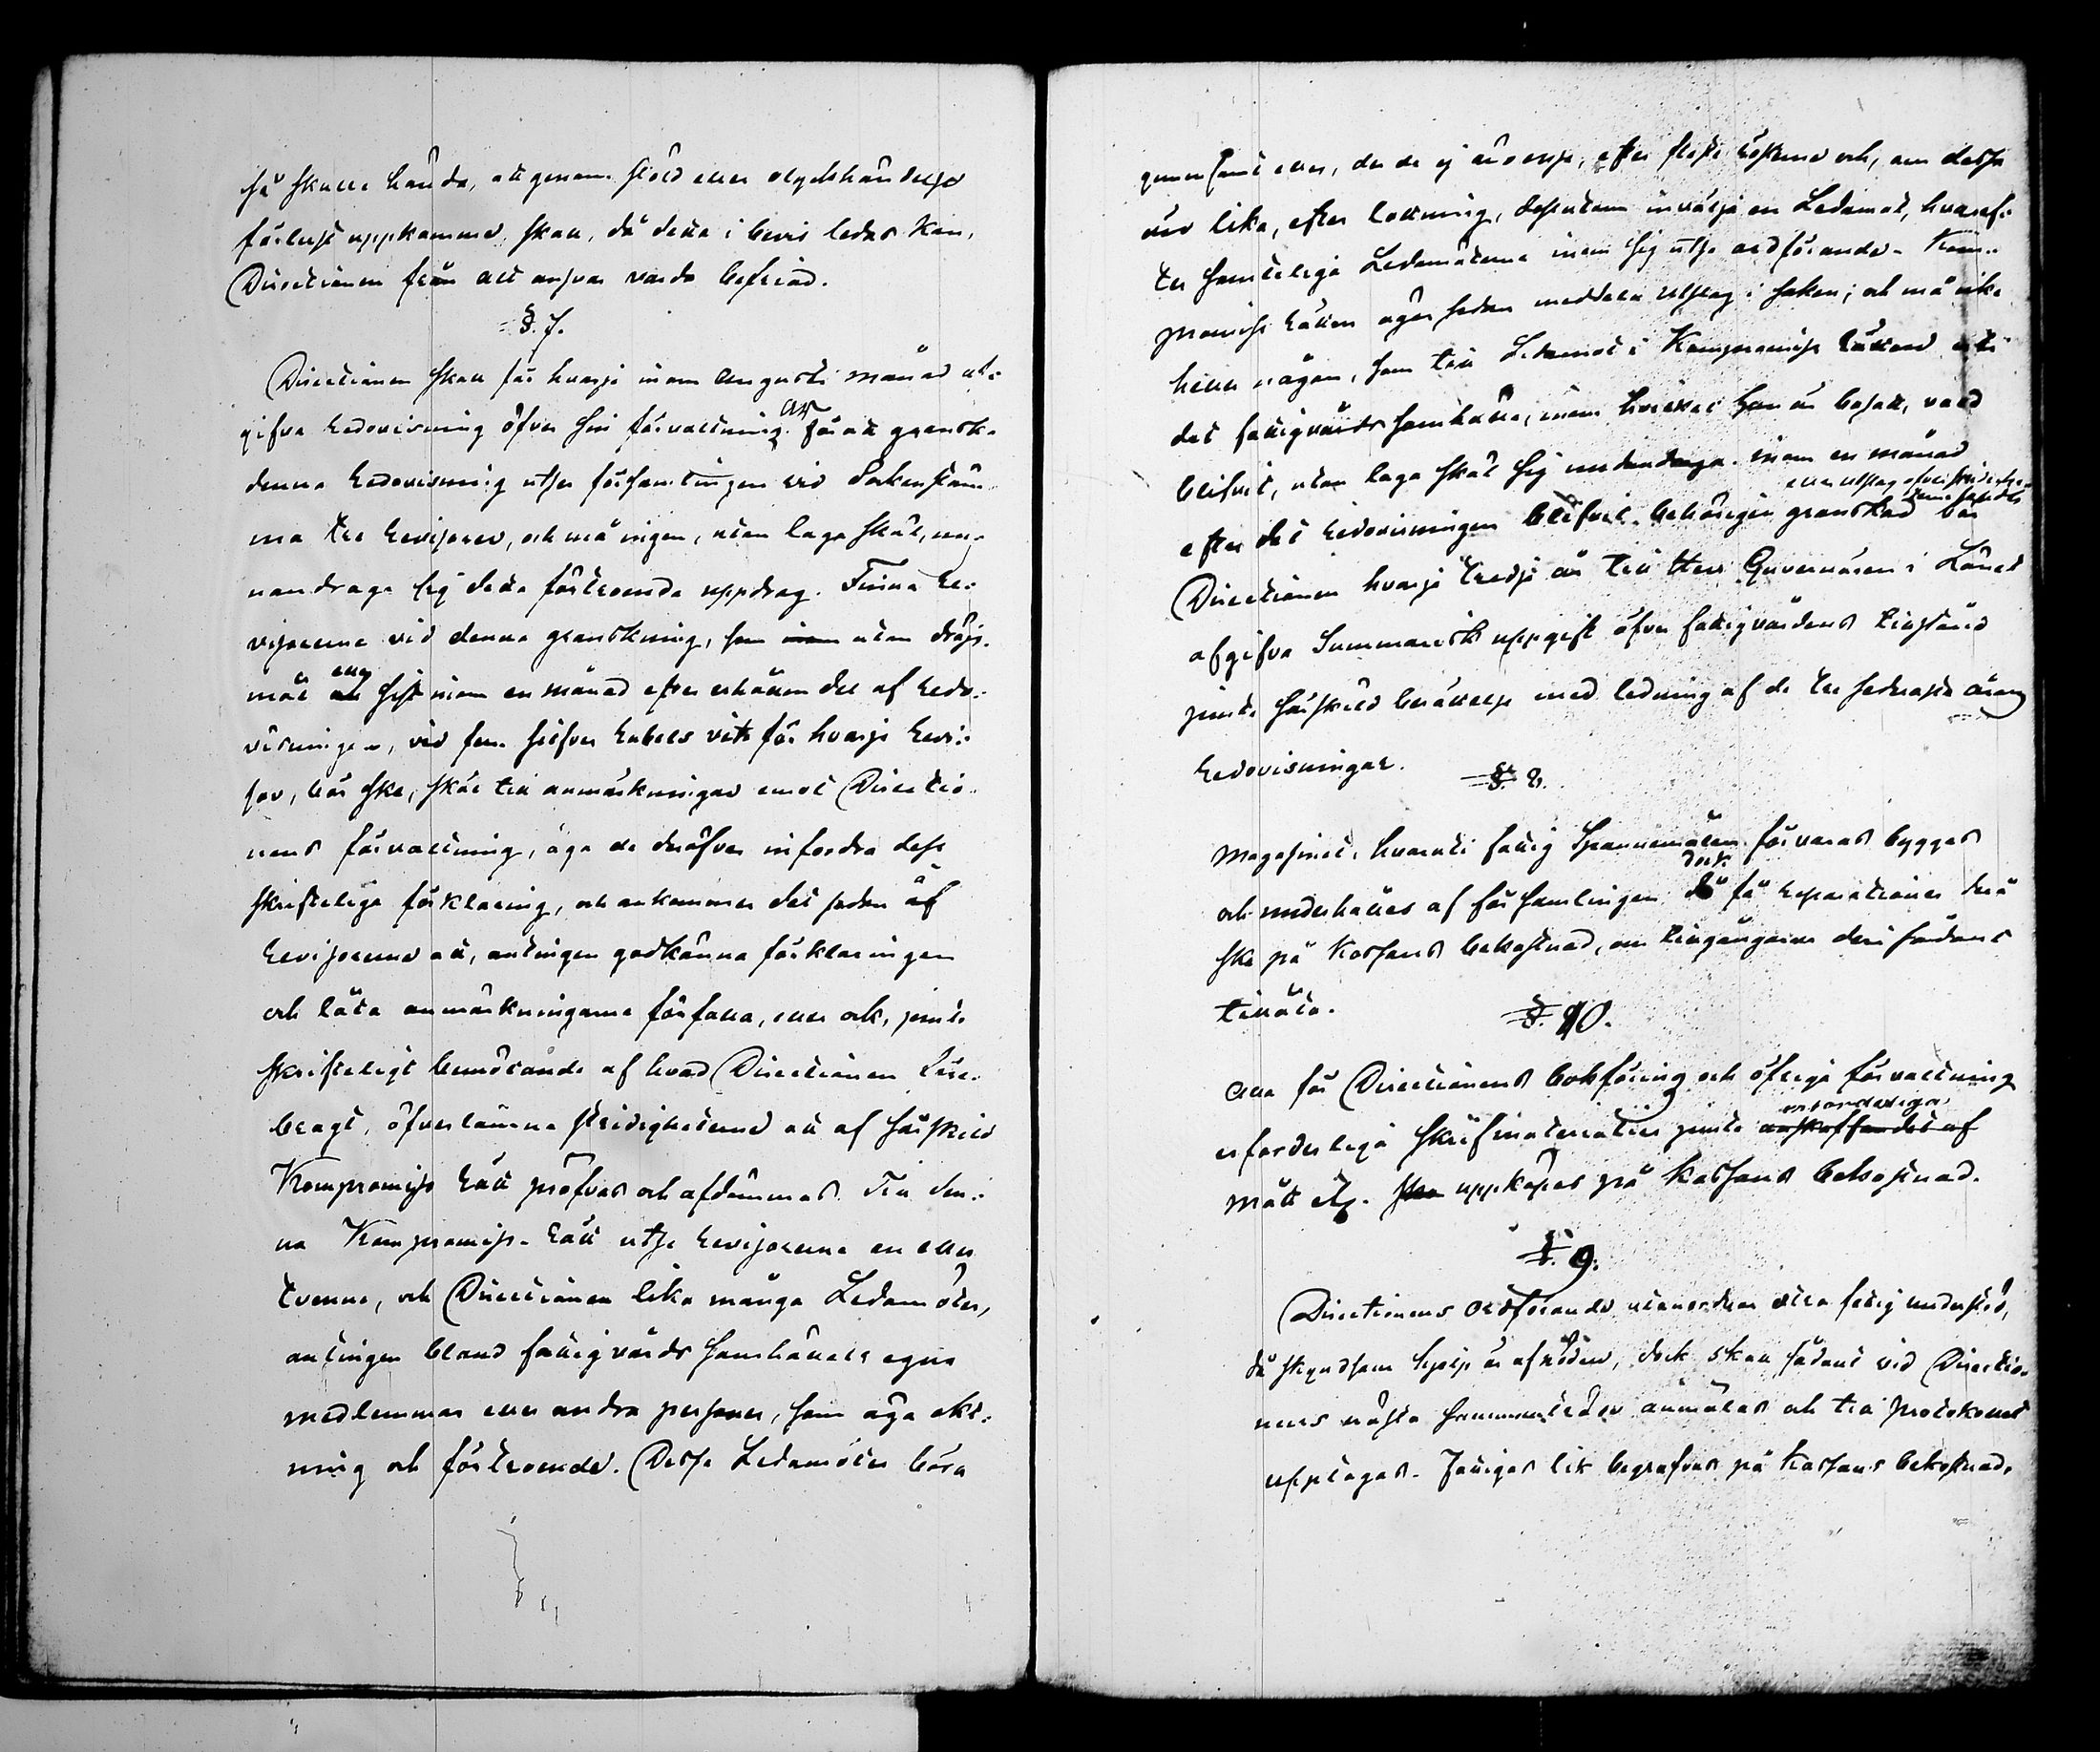 så skulle hända, att genom stöld eller olyckshändelse
förlust uppkomme, skall, då detta i bevis ledas kan,
Directionen från allt ansvar varda befriad.
§. 7.
Directionen skall för hvarje inom Augusti månad ut-
gifva Redovisning öfver sin förvaltning. För att granska
denna Redovisning utser församlingen vid Sockenstäm-
ma tre Revisorer, och må ingen, utan laga skäl, un-
nandraga sig detta förtroende uppdrag. Finna Re-
visorerne vid denna granskning, som utan dröjs-
mål sist inom en månad efter erhållandet af Redo-
visningen, vid fem Silfver Rubels vite för hvarje Revi-
sor, bör ske, skäl till anmärkningar emot Directio-
nens förvaltning, äga de deröfver infordra dess
skrifteliga förklaring, och ankommer det sedan å
Revisorerne att, antingen godkänna förklaringen
och låta anmärkningarne förfalla, eller ock, jemte
skrifteligt bemötande af hvad Directionen
bragt, öfverlämna stridigheterne att af särskild
Kompromiss Rätt pröfvas och afdömmas. Till den-
na Kompromiss-Rätt utse Revisorerne en eller
tvenne, och Directionen lika många Ledamöter,
antingen bland fattigvårds samhällets egna
medlemmar eller andra personer, som äga akt-
ning och förtroende. Desse Ledamöter böra
gemensamt eller, der de ej äro ense, efter flesta rösterne och, om dessa
äro lika, efter lottning, dessutom invälja en Ledamot, hvaref-
ter samtelige Ledamöterne inom sig utse ordförande. Kom-
promiss Rätten äger sedan meddela utslag i saken; och må icke
heller någon, som till Ledamot i Kompromiss Rätten uti
det fattigvårds samhälle, inom hvilket han är bosatt, vald
blifvit, utan laga skäl sig undandraga. Inom en månad
eller utslag öfver stridigheterne
efter det Redovisningen blifvit behörigen granskad bör
Directionen hvarje tredje år till Herr Guvernören i Länet
afgifva Summarisk uppgift öfver fattigvårdens tillstånd
jemte särskild berättelse med ledning af de tre sednaste årens
Redovisningar.
§. 8.
Magasinet, hvaruti fattig Spannemålen förvaras bygges
dock
och underhålles af församlingen få reparationer derå
ske på Kassans bekostnad, om tillgångarne deri sådant
tillåta.
§. 10.
Alla för Directionens bokföring och öfriga förvaltning
erforderliga
erforderliga skrifmaterialier jemte anskaffandet af
mått etc. ska uppköpes på Kassans bekostnad.
§. 9.
Directionens Ordförande utanordnar extra fattig understöd,
då skyndsam hjelp är af nöden, dock skall sådant vid Directio-
nens nästa sammanträde anmälas och till protokollet
upptagas. Fattigas lik begrafvas på Kassans bekostnad.